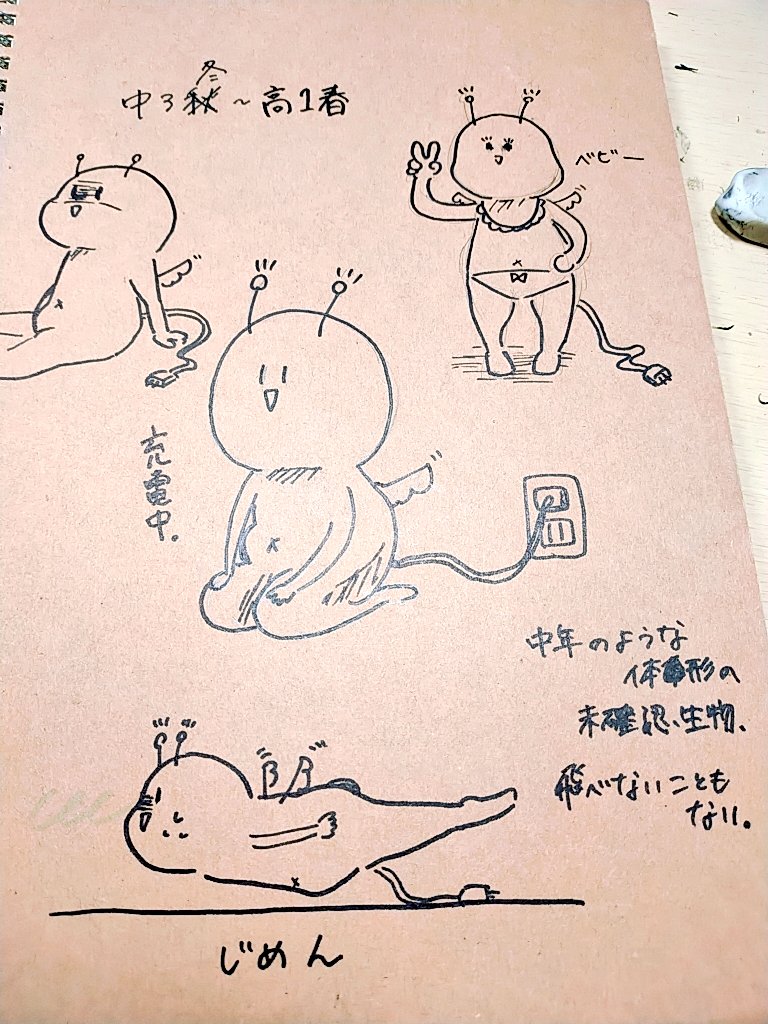 冬
中3秋~高1春
ベビー
充電中。
中年のような
体形の
未確認生物、
飛べないことも
ない。
じめん